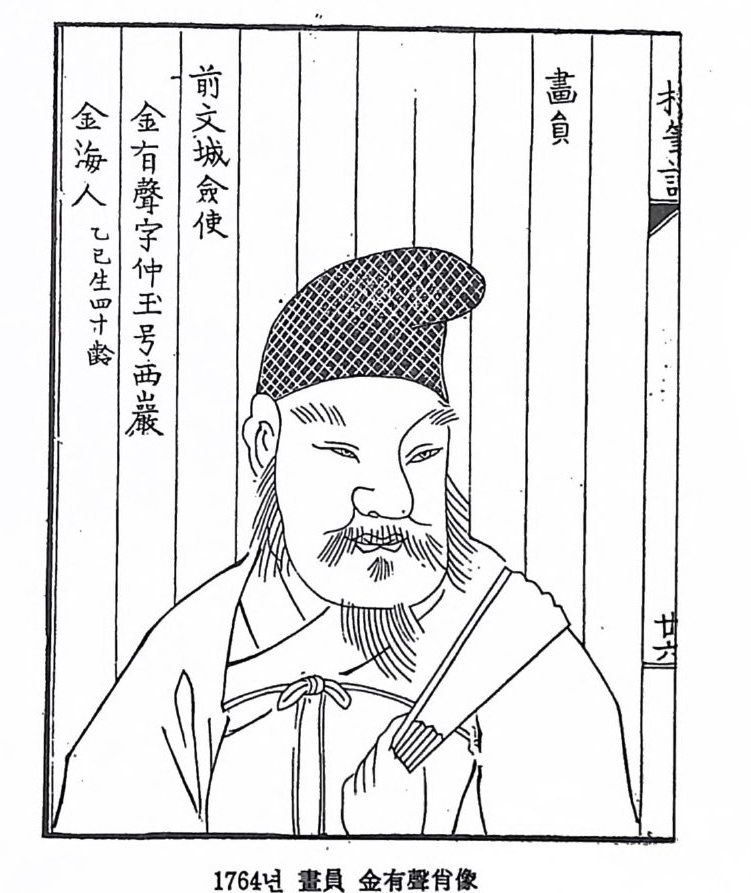 筆
廿六
畫貟
前文城僉使
金有聲字仲玉号西巖
金海人 乙巳生四十齡
1764년 畫員 金有聲肖像